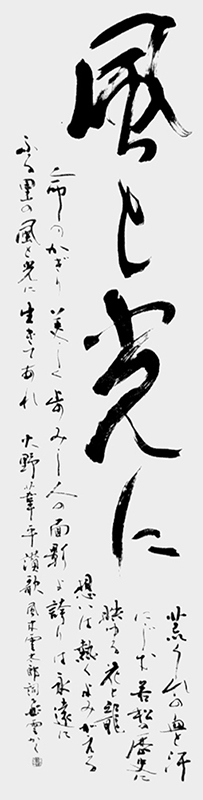 風と光に
荒くれの血と汗
にじむ若松の歴史に
映ゆる花と龍
想いは熱くよみがえる
命のかぎり 美しく歩みし人の面影よ 誇りは永遠に
ふる里の風と光に 生きてあれ 火野葦平讃歌 風木雲太郎詞